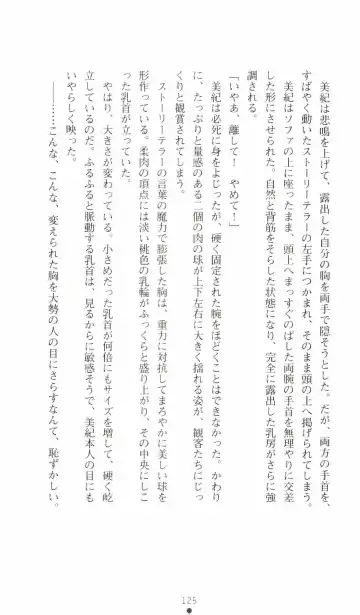 美紀は悲鳴を上げて、露出した自分の胸を両手で隠そうとした。だが、両方の手首を、
すばやく動いたストーリーテラーの左手につかまれ、そのまま頭の上へ掲げられてしまう。
　美紀はソファの上に座ったまま、頭上へまっすぐのばした両腕の手首を無理やりに交差
した形にさせられた。自然と背筋をそらした状態になり、完全に露出した乳房がさらに強
調される。
「いやあ、離して！　やめて！」
　美紀は必死に身をよじったが、硬く固定された腕をほどくことはできなかった。かわり
に、たっぷりと量感のある二個の肉の球が上下左右に大きく揺れる姿が、観客たちにじっ
くりと観賞されてしまう。
　ストーリーテラーの言葉の魔力で膨張した胸は、重力に対抗してまろやかに美しい球を
形作っている。柔肉の頂点には淡い桃色の乳輪がふっくらと盛り上がり、その中央にしこ
った乳首が立っていた。
　やはり、大きさが変わっている。小さめだった乳首が何倍にもサイズを増して、硬く屹
立しているのだ。ふるふると脈動する乳首は、見るからに敏感そうで、美紀本人の目にも
いやらしく映った。
――……こんな、こんな、変えられた胸を大勢の人の目にさらすなんて、恥ずかしい。
125